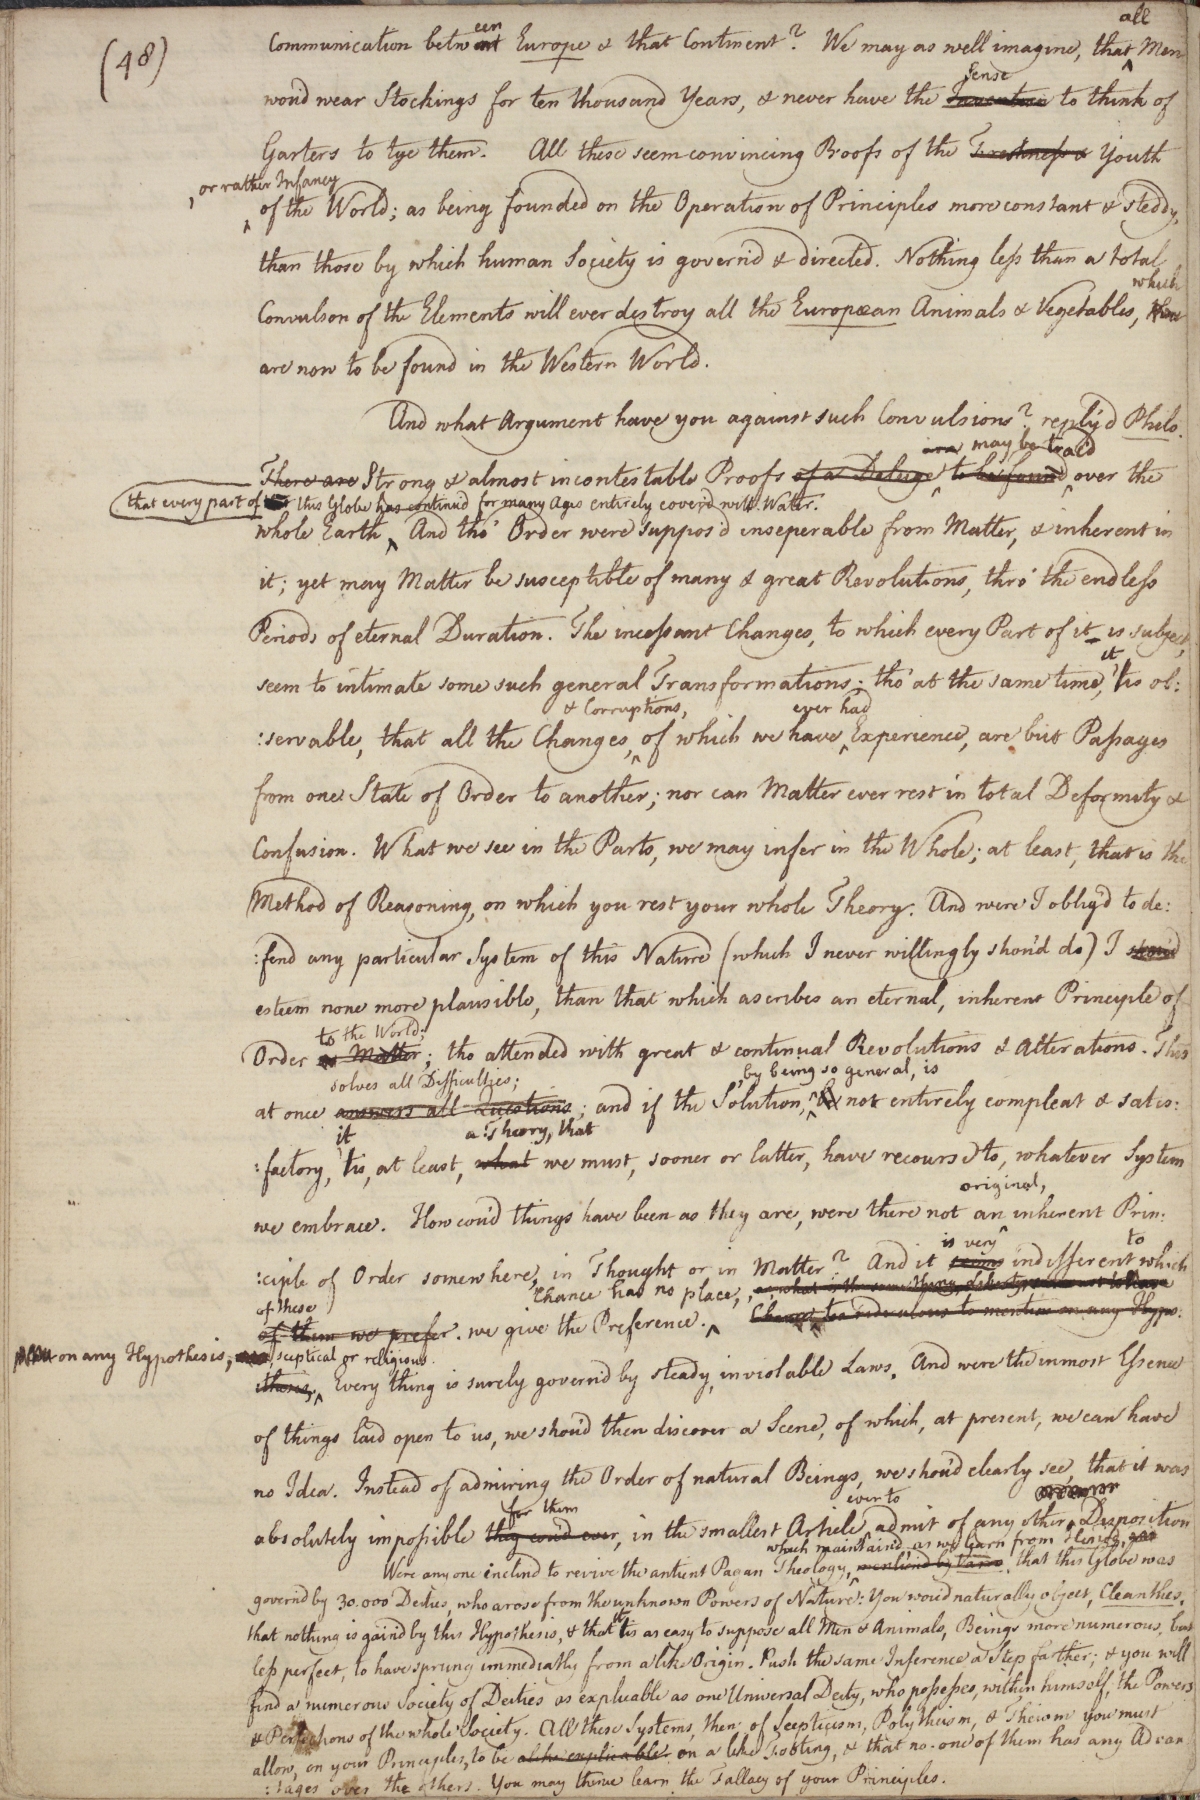 (48)
all
een
Communication betw Europe & that Continent? We may as well imagine, that Men
Sense
wou'd wear Stockings for ten thousand Years, & never have the Invention to think of
Garters to tye them. All these seem convincing Proofs of the Freshness & Youth
, or rather Infancy
of the World; as being founded on the Operation of Principles more constant & steddy,
than those by which human Society is govern'd & directed. Nothing less than a total
which
Convulson of the Elements will ever destroy all the European Animals & Vegetables,
are now to be found in the Western World.
And what Argument have you against such Convulsions? reply'd Philo.
may be trac'd
There are Strong & almost incontestable Proofs of a Deluge to be found over the
that every part of this Globe has continu'd for many Ages entirely cover'd with Water.
whole Earth And tho' Order were suppos'd inseperable from Matter, & inherent in
it; yet may Matter be susceptible of many & great Revolutions, thro' the endless
Periods of eternal Duration. The incessant Changes, to which every Part of it is subject,
it
seem to intimate some such general Transformations; tho' at the same time, 'tis ob:
& Corruptions, ever had
:servable, that all the Changes, of which we have Experience, are but Passages
from one State of Order to another; nor can Matter ever rest in total Deformity &
Confusion. What we see in the Parts, we may infer in the Whole; at least, that is the
Method of Reasoning, on which you rest your whole Theory. And were I oblig'd to de:
:fend any particular System of this Nature (which I never willingly shou'd do) I shou'd
esteem none more plausible, than that which ascribes an eternal, inherent Principle of
to the World;
Order to Matter; tho attended with great & continual Revolutions & Alterations. This
solves all Difficulties; by being so general, is
at once answers all Questions; and if the Solution, be not entirely compleat & satis:
it a Theory, that
:factory, 'tis, at least, what we must, sooner or latter, have recourse to, whatever System
original,
we embrace. How cou'd things have been as they are, were there not an inherent Prin:
is very to
:ciple of Order somewhere, in Thought or in Matter? And it seems indifferent which
Chance has no place,
of these
of them we prefer. we give the Preference. Chance too ridiculous to mention on any Hypo:
on any Hypothesis, sceptical or religious.
:thesis. Every thing is surely govern'd by steady, inviolable Laws. And were the inmost Essence
of things laid open to us, we shou'd then discover a Scene, of which, at present, we can have
no Idea. Instead of admiring the Order of natural Beings, we shou'd clearly see, that it was
for them ever to
absolutely impossible they cou'd ever, in the smallest Article, admit of any other Disposition
which maintain'd as we learn from Hesiod,
Were any one inclin'd to revive the antient Pagan Theology, mention'd by Varro, that this Globe was
govern'd by 30.000 Deities, who arose from the unknown Powers of Nature: You wou'd naturally object, Cleanthes,
it
that nothing is gain'd by this Hypothesis, & that 'tis as easy to suppose all Men & Animals, Beings more numerous, but
less perfect, to have sprung immediatly from a like Origin. Push the same Inference a Step farther; & you will
find a numerous Society of Deities as explicable as one Universal Deity, who possesses, within himself, the Powers
& Perfections of the whole Society. All these Systems, then, of Scepticism, Polytheism, & Theism you must
allow, on your Principles, to be alike explicable. on a like Footing, & that no one of them has any Advan
:tages over the others. You may thence learn the Fallacy of your Principles.